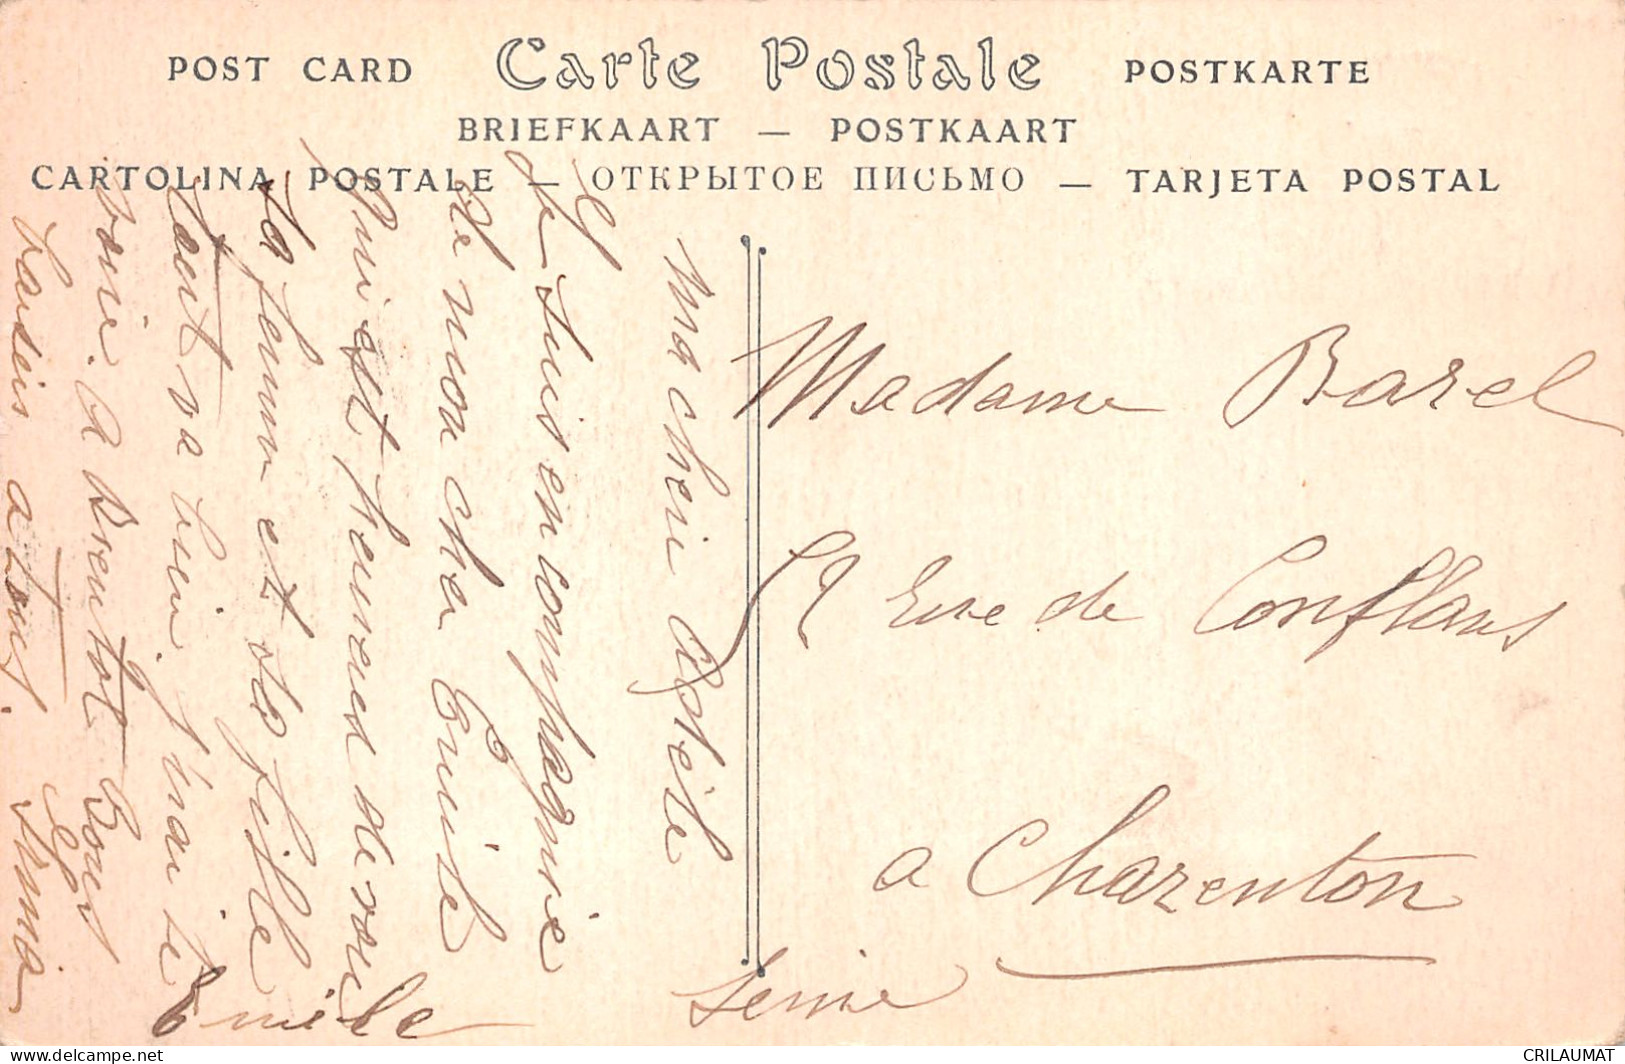 POST CARD Carte Postale POSTKARTE
BRIEFKAART — POSTKAART
CARTOLINA POSTALE — ОТКРЫТОЕ ПИСЬМО — TARJETA POSTAL
Ma cheri Adèle
Je suis en compagnie
de mon cher Emile
qui est heureux de revoir
sa femme et sa fille
tout va bien.
voir. a Bientot Bons
baisers a tous. Irma
Emile
Madame Barel
Rue de Conflans
a Charenton
Seine
CRILAUMAT